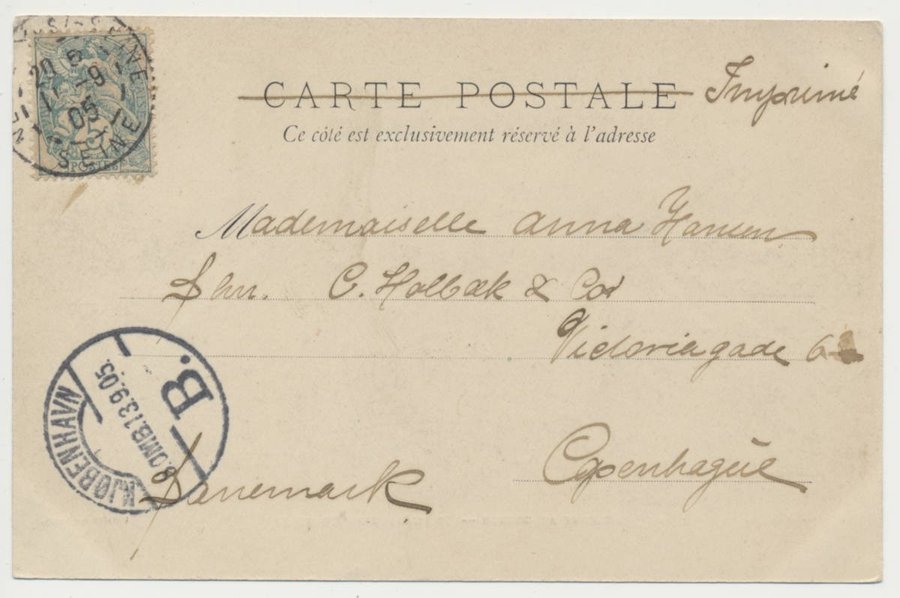 SEINE
20 6
11 -9
05
SEINE
POSTES
CARTE POSTALE Imprimé
Ce côté est exclusivement réservé à l'adresse
Mademoiselle Anna Hansen
C. Holbæk & Co
Victoriagade 6
Copenhague
Danemark
KJØBENHAVN
8.OMB.13.9.05.
B.